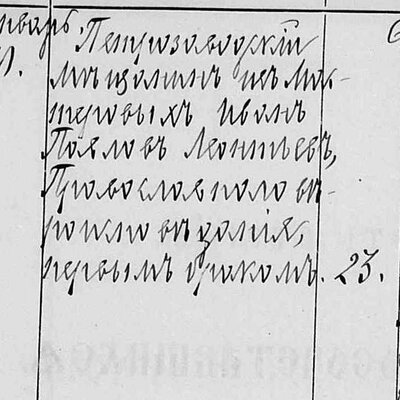 Январь.
Петрозаводскій
мѣщанинъ изъ мас-
теровыхъ Иванъ
Павловъ Леонтьевъ,
Православнаго вѣ-
роисповѣданія,
первымъ бракомъ. 23.